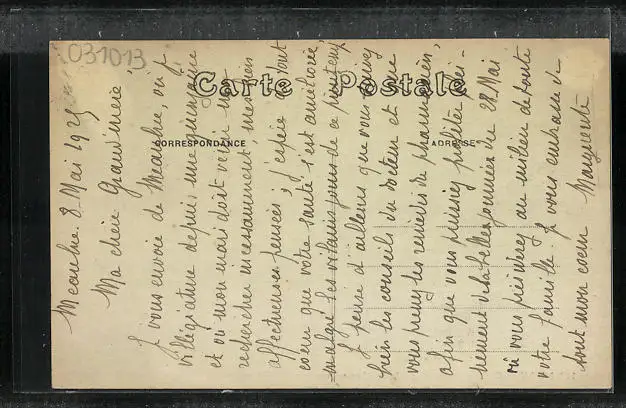 031013
Carte Postale
CORRESPONDANCE
ADRESSE
8 Mai 1925
Ma chère Grand'mère,
je vous envoie de
villégiature depuis une quinzaine
et où mon mari doit venir me
rechercher incessamment, mes bien
affectueuses pensées; j'espère de tout
coeur que votre santé s'est améliorée,
malgré les vilains jours de ce printemps
je pense d'ailleurs que vous suivez
bien les conseils du docteur et que
vous prenez les remèdes du pharmacien,
afin que vous puissiez profiter
la belle journée du 28 Mai
où vous au milieu de toute
votre famille. Je vous embrasse de
tout mon coeur Marguerite